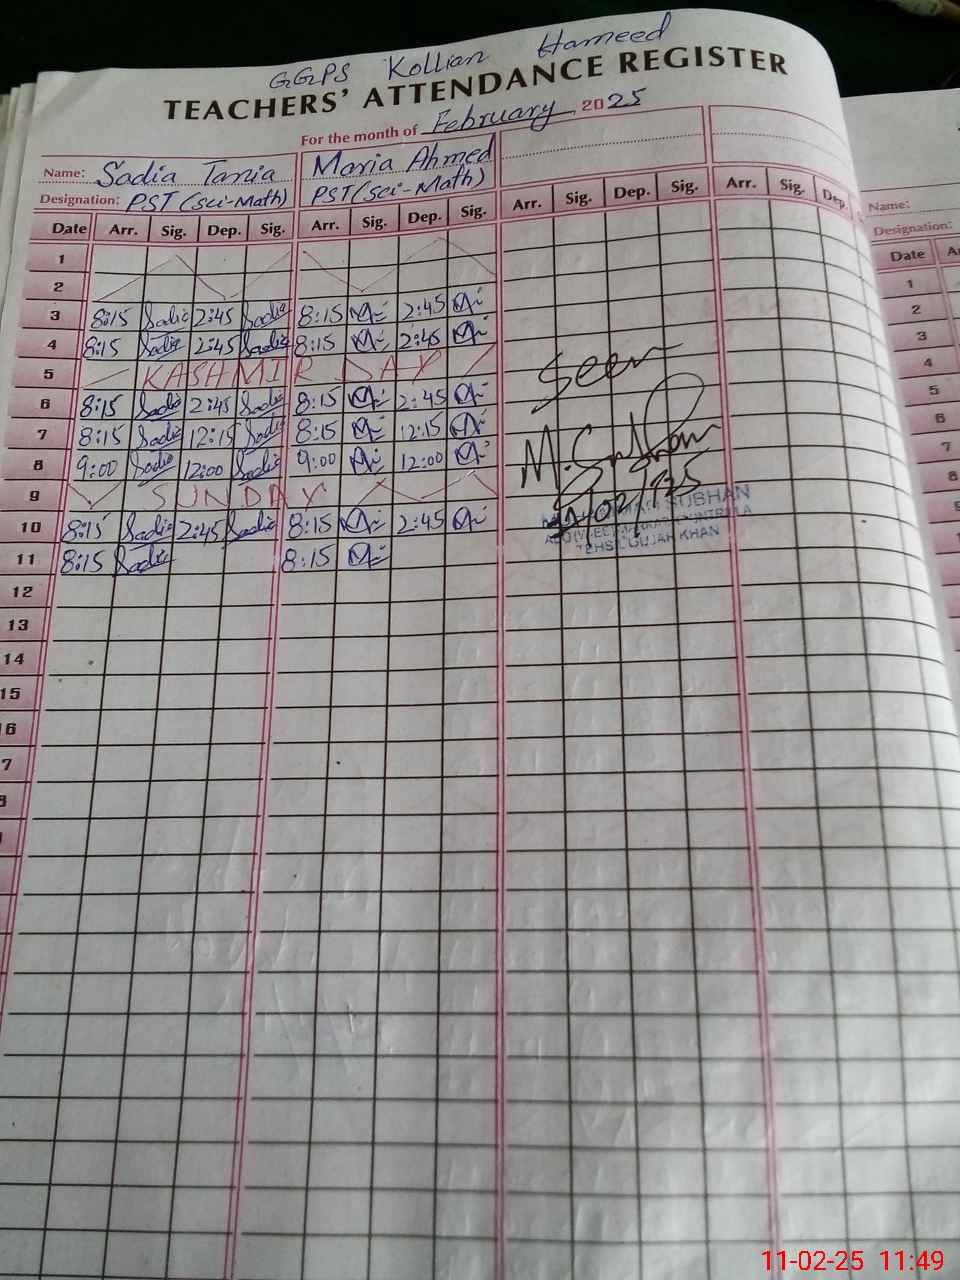 GGPS Kollian Hameed
TEACHERS' ATTENDANCE REGISTER
For the month of February, 2025
Name: Sadia Tania Maria Ahmed
Designation: PST (Sci-Math) PST (Sci-Math)
Date Arr. Sig. Dep. Sig. Arr. Sig. Dep. Sig. Arr. Sig. Dep. Sig. Arr. Sig. Dep.
1
2
3 8:15 Sadia 2:45 Sadia 8:15 2:45
4 8:15 Sadia 2:45 Sadia 8:15 2:45
5 KASHMIR DAY
6 8:15 Sadia 2:45 Sadia 8:15 2:45
7 8:15 Sadia 12:15 Sadia 8:15 12:15
8 9:00 Sadia 12:00 Sadia 9:00 12:00
9 SUNDAY
10 8:15 Sadia 2:45 Sadia 8:15 2:45
11 8:15 Sadia 8:15
12
13
14
15
16
7
8
Seen
SUBHAN
TEHSIL GUJAR KHAN
Name:
Designation:
Date
1
2
3
4
5
6
7
8
9
10
11-02-25 11:49